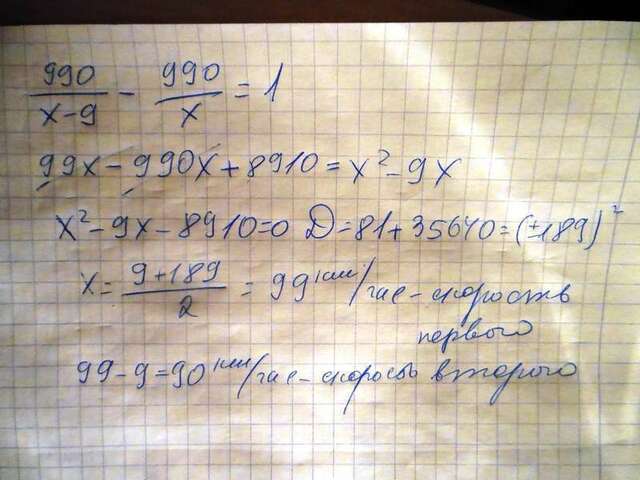 990/(x-9) - 990/x = 1
99x - 990x + 8910 = x² - 9x
x² - 9x - 8910 = 0 D = 81 + 35640 = (±189)²
x = (9+189)/2 = 99 км/час - скорость
первого
99 - 9 = 90 км/час - скорость второго